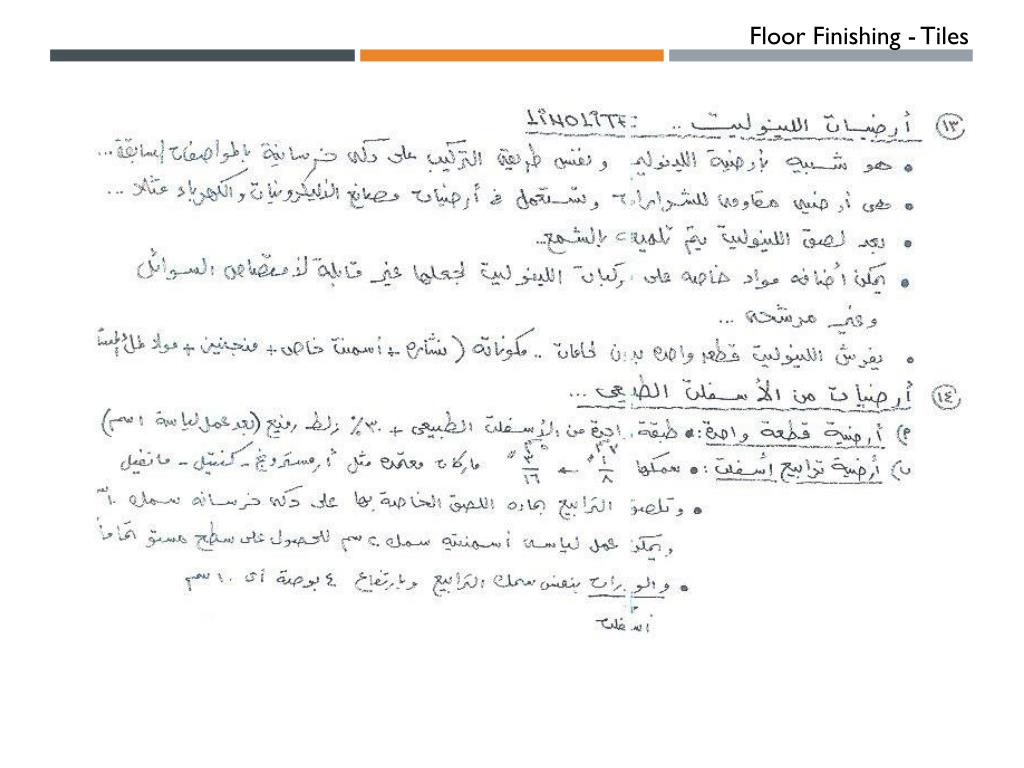 Floor Finishing - Tiles
١٣ أرضيات اللينوليت .. LINOLITE:
• هو شبيه بأرضية اللينوليم ونفس طريقة التركيب على دكه خرسانية بالمواصفات السابقة...
• هى أرضيه مقاومه للشرارات وتستعمل فى أرضيات مصانع الاليكترونيات والكهرباء مثلا ...
• بعد لصق اللينوليت يتم تلميعه بالشمع..
• يمكن أضافه مواد خاصه على تركيبات اللينوليت لجعلها غير قابلة لأمتصاص السوائل
وغير مرشحه ...
• يفرش اللينوليت قطعه واحده بدون لحامات .. مكوناته (نشاره + أسمنت خاص + منجنيز + مواد
١٤ أرضيات من الأسفلت الطبيعى ...
أ) أرضية قطعة واحدة: • طبقة واحدة من الأسفلت الطبيعى + ٣٠٪ زلط رفيع (بعد عمل لياسة ١سم)
ب) أرضية ترابيع إسفلت: • سمكها ١/٨" ← ٣/١٦" ماركات معتمده مثل أرمسترونج - كنتيل -
• وتلصق الترابيع بماده اللصق الخاصة بها على دكه خرسانه سمك ١٠سم
ويمكن عمل لياسه أسمنتيه سمك ٢سم للحصول على سطح مستو تماماً
• والوزرات بنفس سمك الترابيع وبارتفاع ٤ بوصة أى ١٠سم
أسفلت